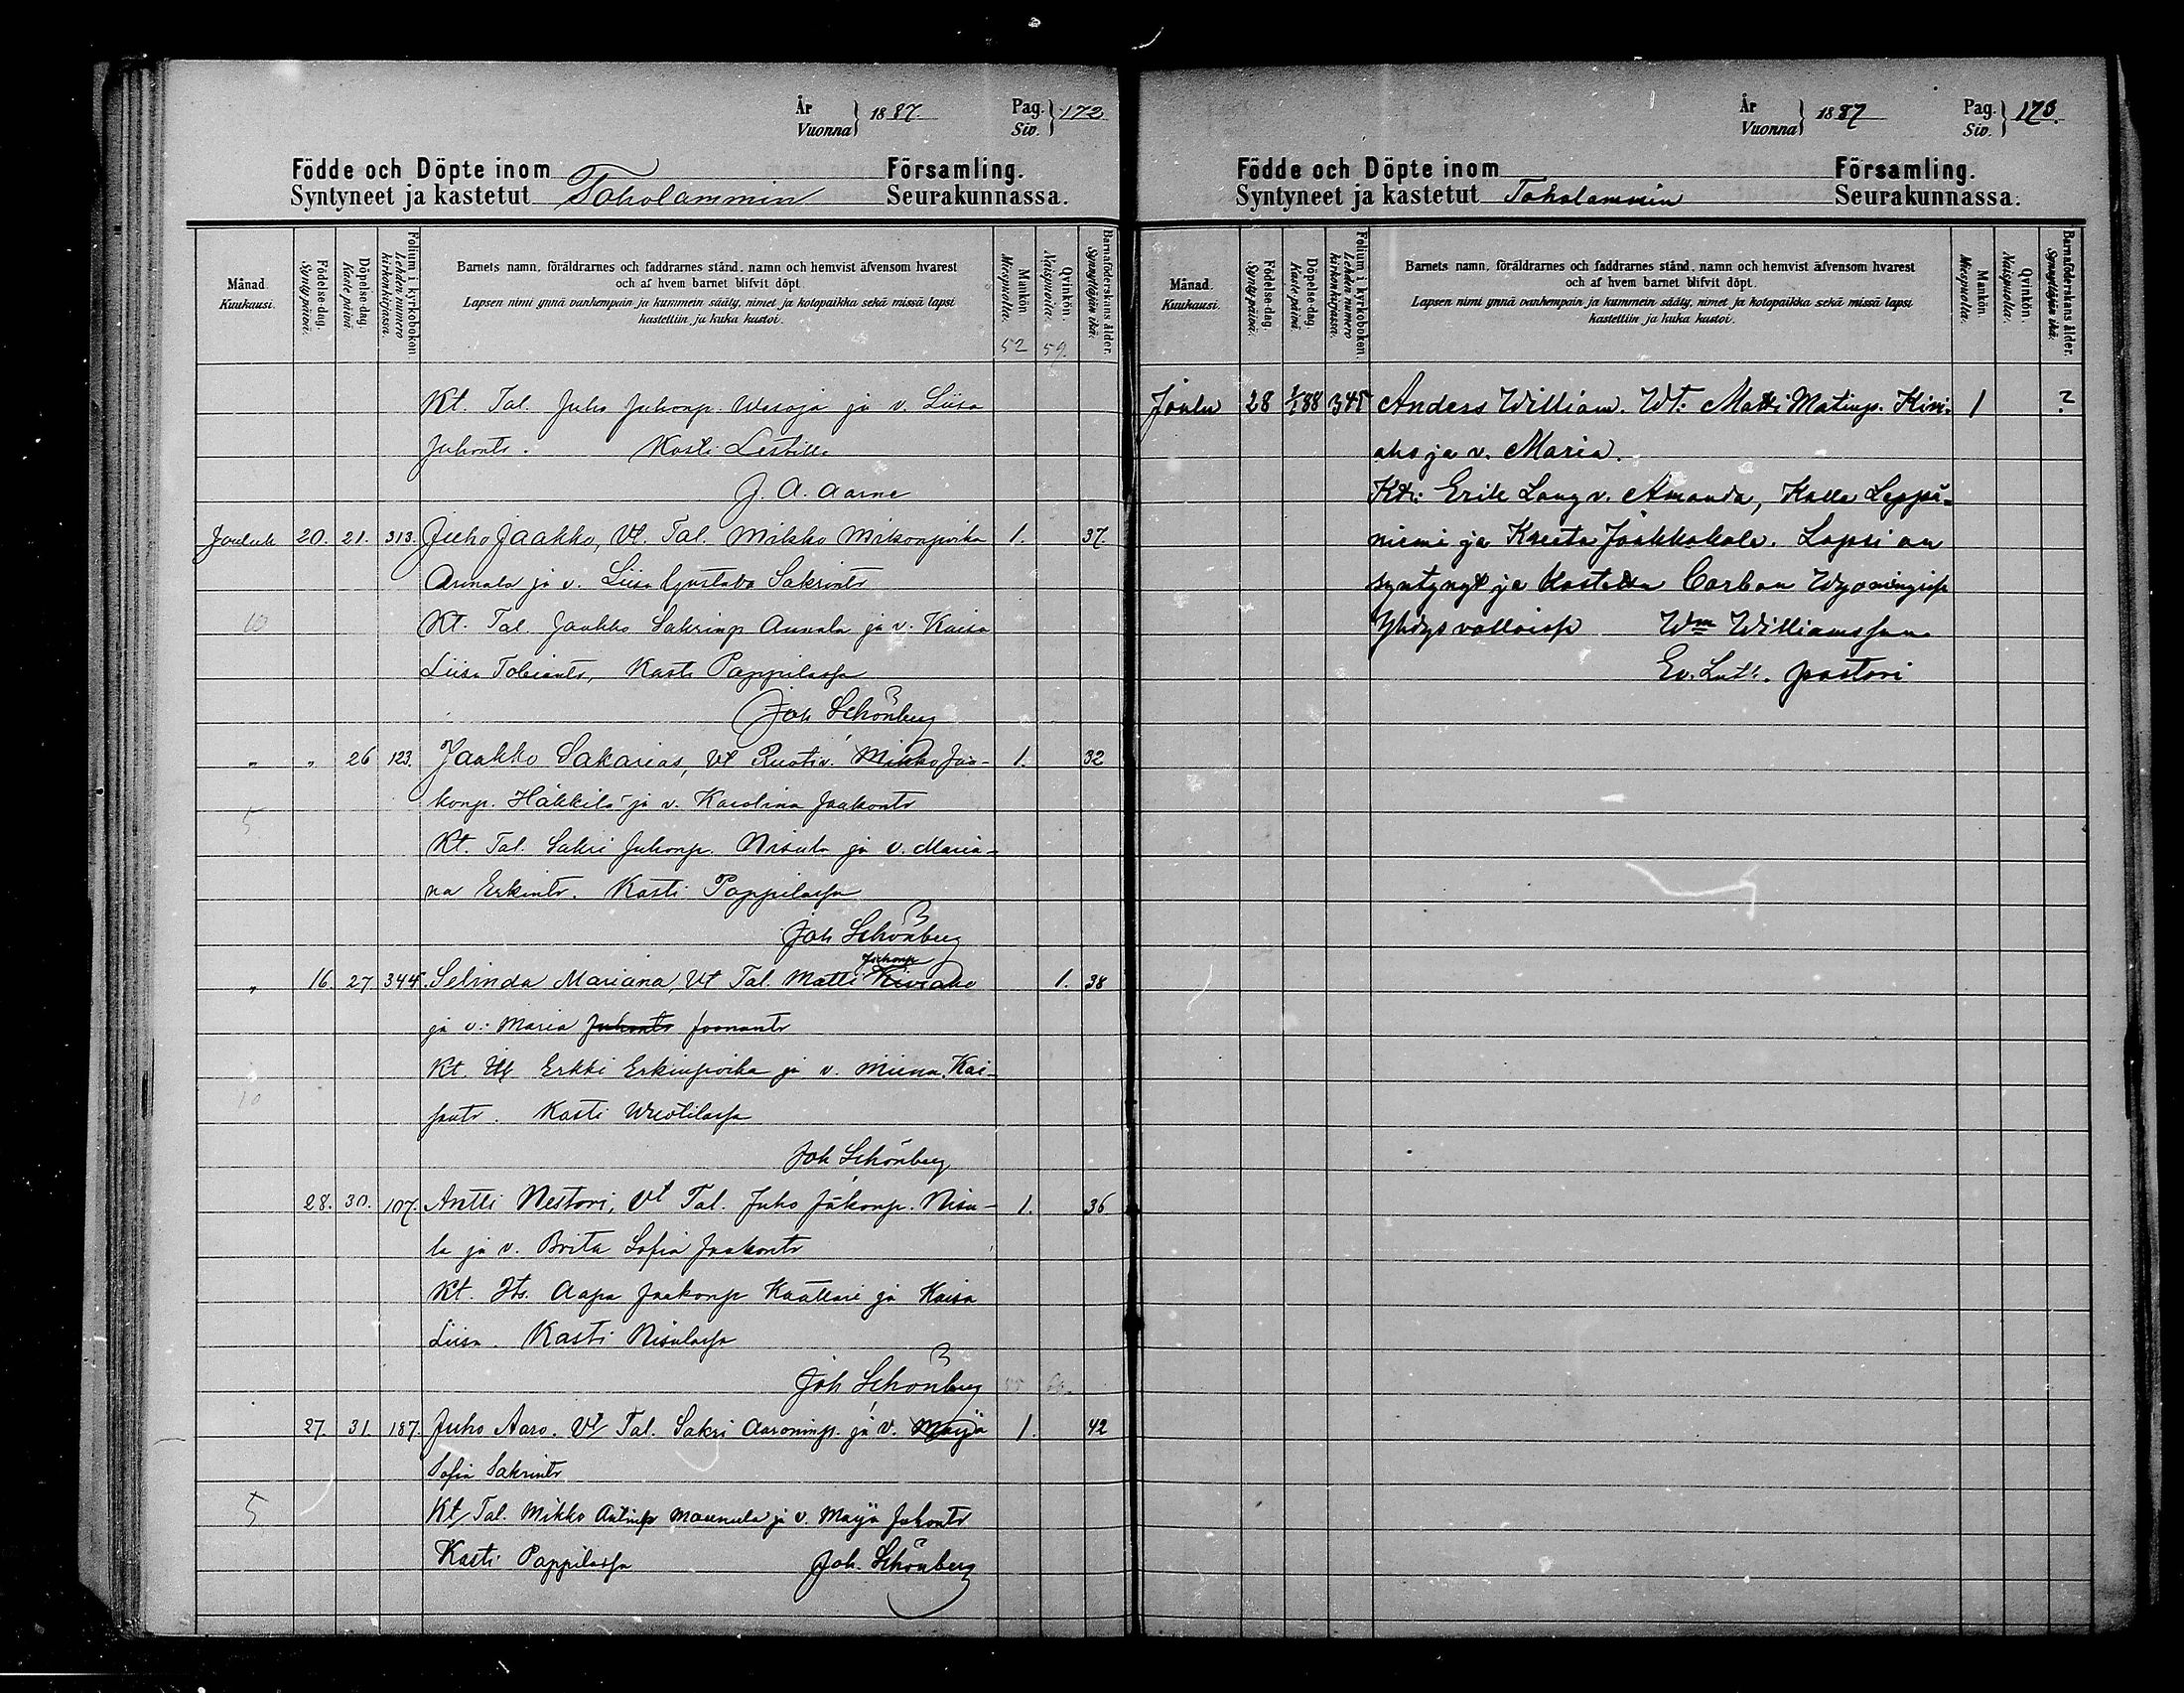 År
Vuonna } 1887. Pag.
Siv. } 172
Födde och Döpte inom Församling.
Syntyneet ja kastetut Toholammin Seurakunnassa.
Månad.
Kuukausi.
Födelse-dag.
Syntypäivä.
Döpelse-dag.
Kastepäivä
Folium i kyrkoboken
Lehden numero
kirkonkirjassa.
Barnets namn, föräldrarnes och faddrarnes stånd, namn och hemvist äfvensom hvarest
och af hvem barnet blifvit döpt.
Lapsen nimi ynnä vanhempain ja kummein sääty, nimet ja kotopaikka sekä missä lapsi
kastettiin ja kuka kastoi.
Mankön.
Miespuolia.
Qvinkön.
Naispuolia.
Barnaföderskans ålder.
Synnyttäjän ikä.
52 59.
Kt. Tal. Juho Juhonp. ja v. Liisa
Juhontr. Kasti Lestille
J. A. Aarne
Jouluk 20. 21. 313. Juho Jaakko, Vt. Tal. Mikko Mikonpoika 1. 37.
ja v. Liisa Gustava Sakrintr
10 Kt. Tal. Jaakko Sakrinp Annala ja v. Kaisa
Liisa Tobiantr, Kasti Pappilassa
Joh Schönberg
" " 26 123. Jaakko Sakarias, Vt Ruotiv. Mikko Jaa- 1. 32
konp. Häkkilä ja v. Karolina Jaakontr
5 Kt. Tal. Sakri Juhonp. Nisula ja v. Maria-
na Erkintr. Kasti Pappilassa
Joh Schönberg
Juhonp
" 16. 27 344. Selinda Mariana, Vt Tal. Matti Kiviaho 1. 38
ja v. Maria Juhontr Joonantr
Kt. Erkki Erkinpoika ja v. Miina Kai-
10 santr. Kasti
Joh Schönberg
28. 30. 107. Antti Nestori, Vt Tal. Juho Jakonp. Nisu- 1. 36
la ja v. Brita Sofia Jaakontr
Kt. Its. Aapa Jaakonp Kaattari ja Kaisa
Liisa. Kasti Nisulassa
Joh Schönberg
27. 31. 187. Juho Aaro. Vt Tal. Sakri Aaroninp. ja v. Maija 1. 42
Sofia Sakrintr
5 Kt Tal. Mikko Antinp Maunula ja v. Maija Juhontr
Kasti Pappilassa Joh. Schönberg
År
Vuonna } 1887 Pag.
Siv. } 173.
Födde och Döpte inom Församling.
Syntyneet ja kastetut Toholammin Seurakunnassa.
Månad.
Kuukausi.
Födelse-dag.
Syntypäivä.
Döpelse-dag.
Kastepäivä.
Folium i kyrkoboken
Lehden numero
kirkonkirjassa.
Barnets namn, föräldrarnes och faddrarnes stånd, namn och hemvist äfvensom hvarest
och af hvem barnet blifvit döpt.
Lapsen nimi ynnä vanhempain ja kummein sääty, nimet ja kotopaikka sekä missä lapsi
kastettiin ja kuka kastoi.
Mankön.
Miespuolia.
Qvinkön.
Naispuolia.
Barnaföderskans ålder.
Synnyttäjän ikä.
Joulu 28 1/1 88 345 Anders William. Wt: Matti Matinp. Kivi- 1 ?
aho ja v. Maria.
Kt: Erik Lang v. Amanda, Kalle Leppä-
niemi ja Kreeta Jaakkokola. Lapsi on
syntynyt ja Kastettu Carbon Wyomingissa
Yhdysvalloissa Wm Williamsson
Ev. Luth. pastori